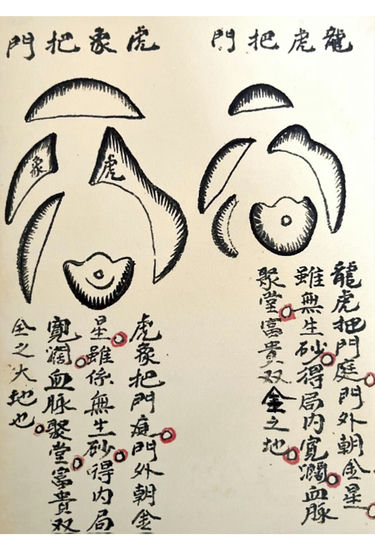 龍虎把門
龍虎把門庭門外朝金星
雖無生砂得局內寬濶血脈
聚堂富貴双全之地
虎象把門
虎
象
虎象把門庭門外朝金
星雖係無生砂得內局
寬濶血脈聚堂富貴双
全之大地也